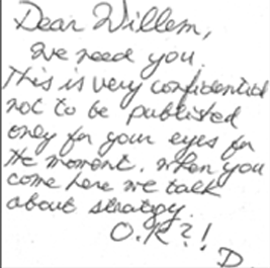 Dear Willem,
we need you.
This is very confidential
not to be published
only for your eyes for
the moment. when you
come here we talk
about strategy.
O.K?!
D.